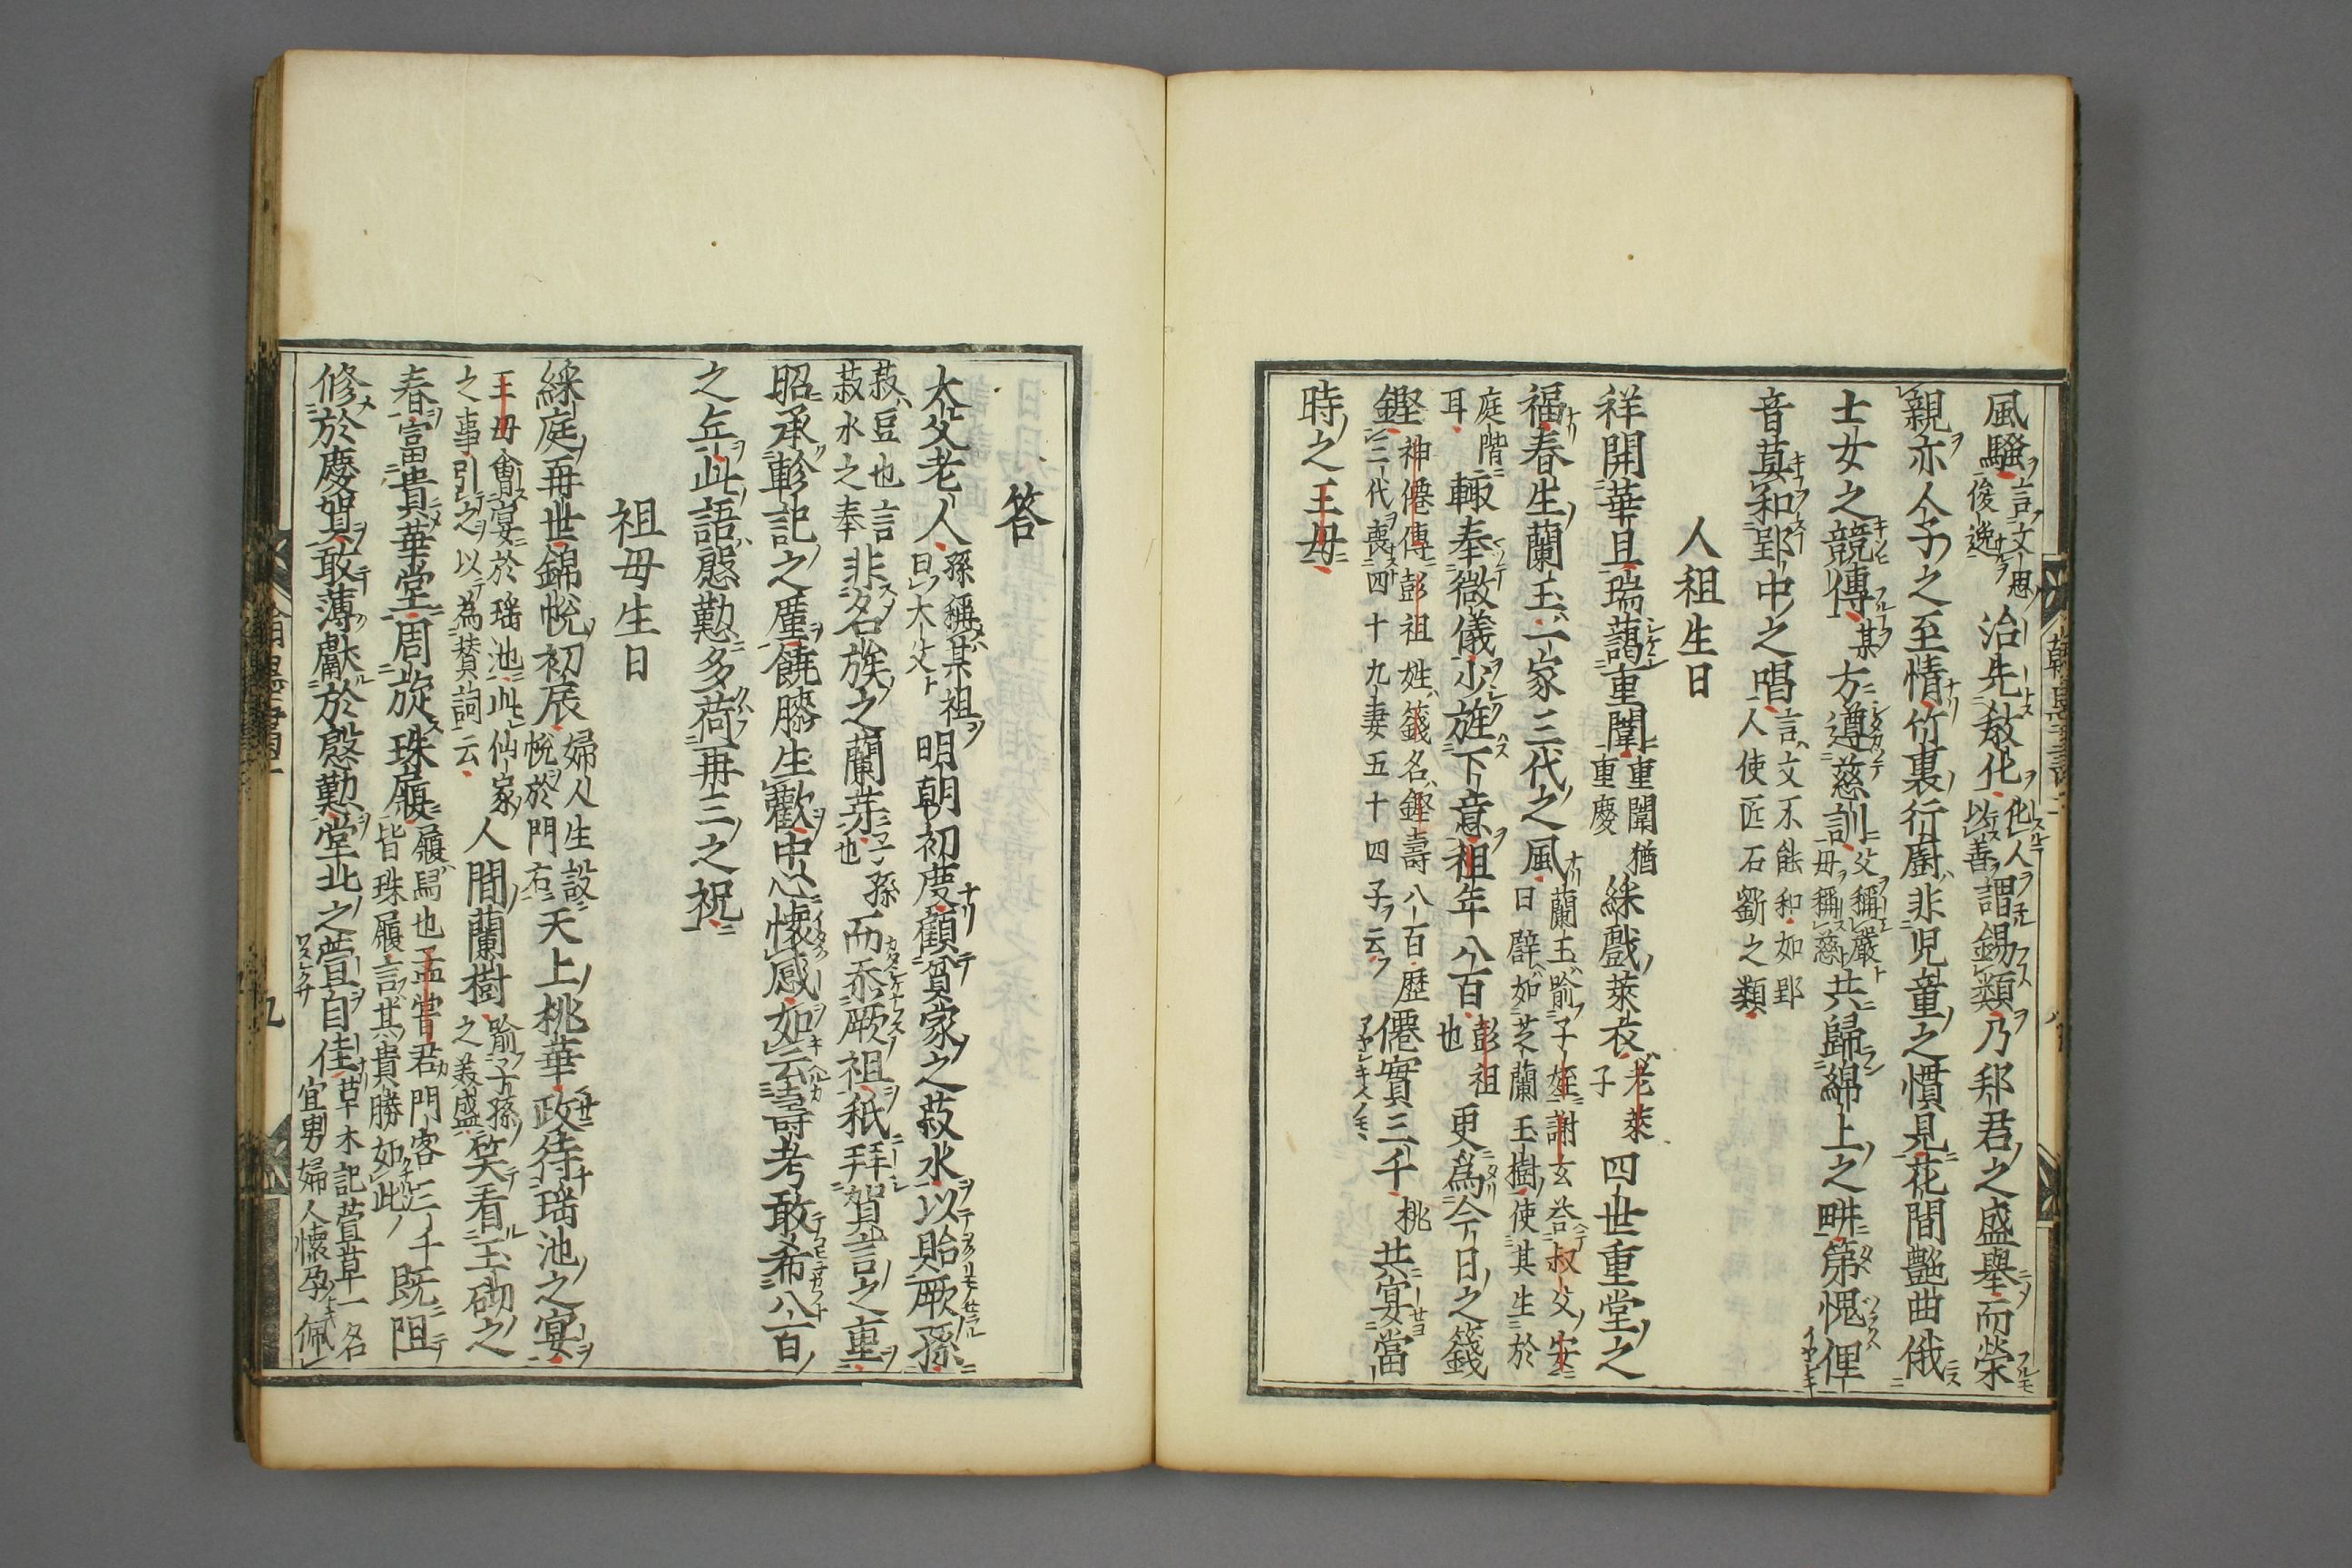 風騷言文思俊逸治先敎化化人以善謂錫類乃邦君之盛舉而榮
親亦人子之至情竹裏行廚非児童之慣見花間艷曲俄
士女之競傳某方遵慈訓父稱嚴母稱慈共歸綿上之畊第愧俚
音莫和郢中之唱言文不能和如郢人使匠石斵之類
人祖生日
祥開華旦瑞藹重闈重闈猶重慶綵戲萊衣老萊子四世重堂之
福春生蘭玉一家三代之風蘭玉喻子姪謝玄荅叔父安曰辟如芝蘭玉樹使其生於
庭階耳輙奉微儀少旌下意祖年八百彭祖也更爲今日之籛
鏗神僊傳彭祖姓籛名鏗壽八百歷三代喪四十九妻五十四子云僊實三千桃共宴當
時之王母
答
大父老人孫稱某祖曰大父明朝初度顧貧家之菽水以貽厥孫
菽豆也言菽水之奉非名族之蘭芽子孫也而忝厥祖秖拜賀言之重
昭承軫記之廑饒膝生歡中心懷感如云壽考敢希八百
之年此語慇懃多荷再三之祝
祖母生日
綵庭再世錦帨初展婦人生設帨於門右天上桃華政待瑶池之宴
王母會宴於瑶池此仙家之事引之以為賛詞云人間蘭樹喻子孫之美盛笑看玉砌之
春富貴華堂周旋珠履履舄也孟嘗君門客三千皆珠履言其貴勝如此既阻
修於慶賀敢薄獻於慇懃堂北之萱自佳草木記萱草一名宜男婦人懷孕佩